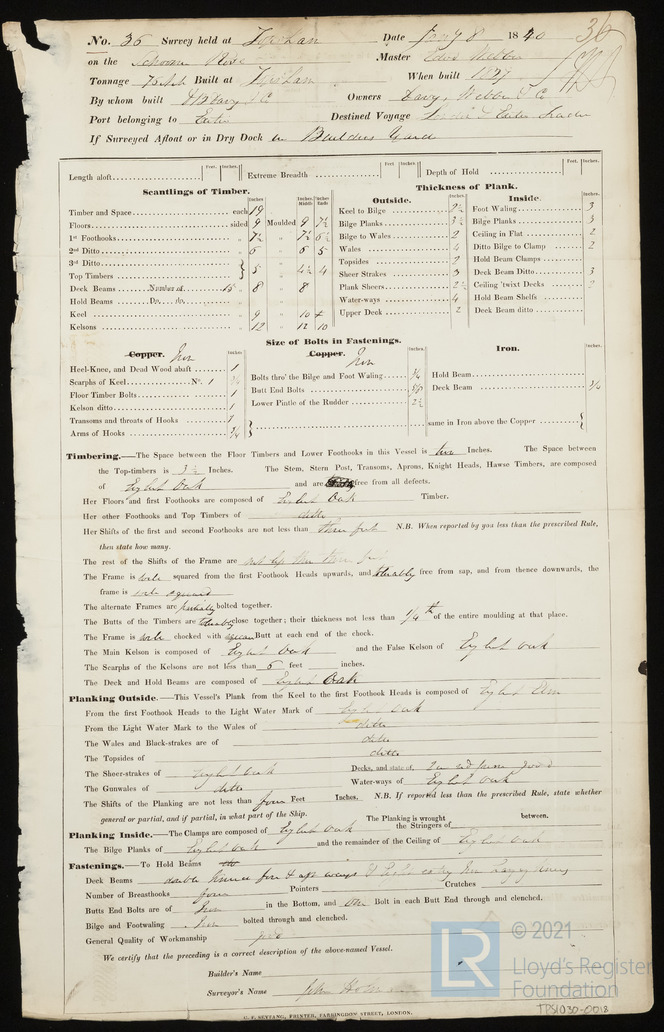 36
No. 36 Survey held at Topsham Date Jany 8 1840
on the Schooner Rose Master Edwd Webber
Tonnage Built at Topsham When built 1827
By whom built Davy & Co Owners Davy, Webber & Co
Port belonging to Exeter Destined Voyage London & Exeter Trader
If Surveyed Afloat or in Dry Dock in Builders Yard
Length aloft Feet. Inches. Extreme Breadth Feet Inches. Depth of Hold Feet. Inches.
Scantlings of Timber.
Inches Inches. Middle Inches Ends
Timber and Space each 19
Floors sided 9 Moulded 9 7½
1st Foothooks „ 7½ „ 7½ 6½
2nd Ditto „ 6 „ 6 5
3rd Ditto
Top Timbers } 5 „ 4½ 4
Deck Beams Number of 15 „ 8 „ 8
Hold Beams Do. do. „ „
Keel „ 9 „ 10
Kelsons „ 12 „ 12 10
Thickness of Plank.
Outside. Inches
Keel to Bilge 2½
Bilge Planks 3½
Bilge to Wales 2
Wales 4
Topsides 2
Sheer Strakes 3
Plank Sheers 2½
Water-ways 4
Upper Deck 2
Inside Inches.
Foot Waling 3
Bilge Planks 3
Ceiling in Flat 2
Ditto Bilge to Clamp 2
Hold Beam Clamps
Deck Beam Ditto 3
Ceiling 'twixt Decks 2
Hold Beam Shelfs
Deck Beam ditto
Size of Bolts in Fastenings.
Copper. Iron Inches
Heel-Knee, and Dead Wood abaft 1
Scarphs of Keel No. 1
Floor Timber Bolts 1
Kelson ditto 1
Transoms and throats of Hooks 1
Arms of Hooks ¾
Copper. Iron Inches.
Bolts thro' the Bilge and Foot Waling ¾
Butt End Bolts 5/8
Lower Pintle of the Rudder 2½
Iron. Inches.
Hold Beam
Deck Beam ¾
same in Iron above the Copper
Timbering.—The Space between the Floor Timbers and Lower Foothooks in this Vessel is two Inches. The Space between
the Top-timbers is 3½ Inches. The Stem, Stern Post, Transoms, Aprons, Knight Heads, Hawse Timbers, are composed
of English Oak and are free from all defects.
Her Floors and first Foothooks are composed of English Oak Timber.
Her other Foothooks and Top Timbers of ditto
Her Shifts of the first and second Foothooks are not less than three feet N.B. When reported by you less than the prescribed Rule,
then state how many.
The rest of the Shifts of the Frame are not less than three feet
The Frame is well squared from the first Foothook Heads upwards, and tolerably free from sap, and from thence downwards, the
frame is well squared
The alternate Frames are partially bolted together.
The Butts of the Timbers are tolerably close together; their thickness not less than 1/4th of the entire moulding at that place.
The Frame is well chocked with square Butt at each end of the chock.
The Main Kelson is composed of English Oak and the False Kelson of English Oak
The Scarphs of the Kelsons are not less than 5 feet inches.
The Deck and Hold Beams are composed of English Oak
Planking Outside.—This Vessel's Plank from the Keel to the first Foothook Heads is composed of English Elm
From the first Foothook Heads to the Light Water Mark of English Oak
From the Light Water Mark to the Wales of ditto
The Wales and Black-strakes are of ditto
The Topsides of ditto
The Sheer-strakes of English Oak Decks, and state of, good
The Gunwales of ditto Water-ways of English Oak
The Shifts of the Planking are not less than four Feet Inches. N.B. If reported less than the prescribed Rule, state whether
general or partial, and if partial, in what part of the Ship. The Planking is wrought between.
Planking Inside.—The Clamps are composed of English Oak the Stringers of
The Bilge Planks of English Oak and the remainder of the Ceiling of English Oak
Fastenings.—To Hold Beams
Deck Beams double knees fore & aft ways
Number of Breasthooks four Pointers Crutches
Butts End Bolts are of Iron in the Bottom, and One Bolt in each Butt End through and clenched.
Bilge and Footwaling Iron bolted through and clenched.
General Quality of Workmanship good
We certify that the preceding is a correct description of the above-named Vessel.
Builder's Name
Surveyor's Name John
C. F. SEYFANG, PRINTER, FARRINGDON STREET, LONDON.
LR © 2021
Lloyd's Register
Foundation
TPS1030-0018